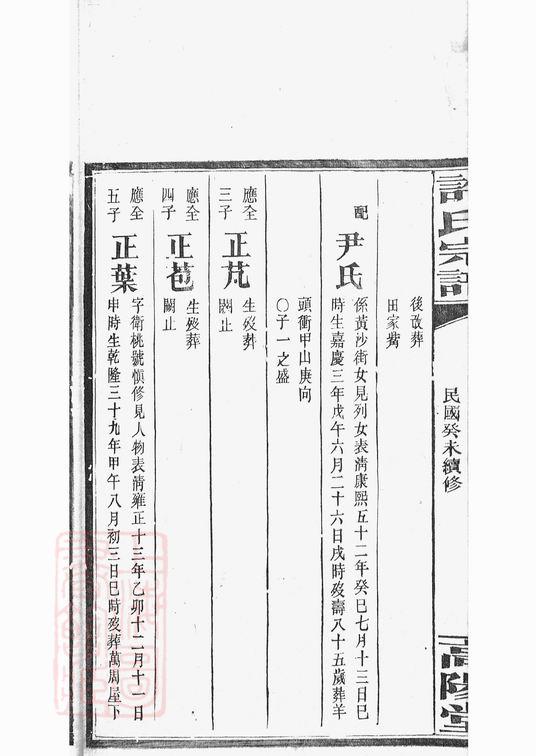 許氏宗譜
民國癸未續修
高陽堂
後改葬
田家嘴
配
尹氏
係黃沙街女見列女表清康熙五十二年癸巳七月十三日巳
時生嘉慶三年戊午六月二十六日戌時歿壽八十五歲葬羊
頭衝甲山庚向
〇子一之盛
應全
三子
正芃
生歿葬
闕止
應全
四子
正苞
生歿葬
闕止
應全
五子
正葉
字衛桃號愼修見人物表清雍正十三年乙卯十二月十一日
申時生乾隆三十九年甲午八月初三日巳時歿葬萬周屋下